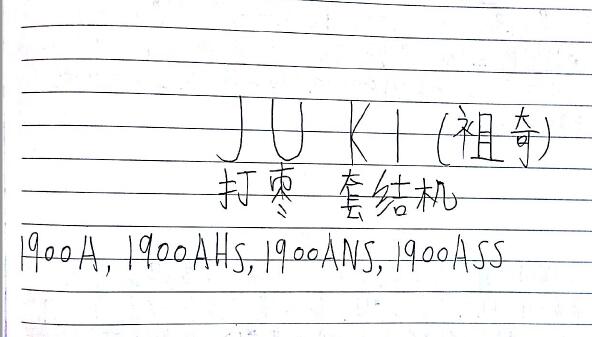 JUKI (祖奇)
打枣 套结机
1900A, 1900AHS, 1900ANS, 1900ASS